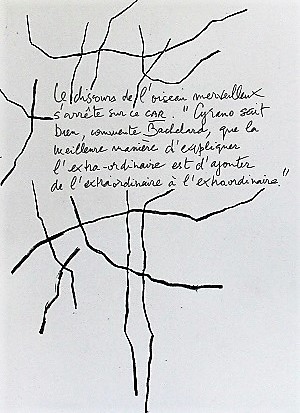 Le discours de l'oiseau merveilleux
s'arrête sur ce CAR. "Cyrano sait
bien, commente Bachelard, que la
meilleure manière d'expliquer
l'extra-ordinaire est d'ajouter
de l'extraordinaire à l'extraordinaire."